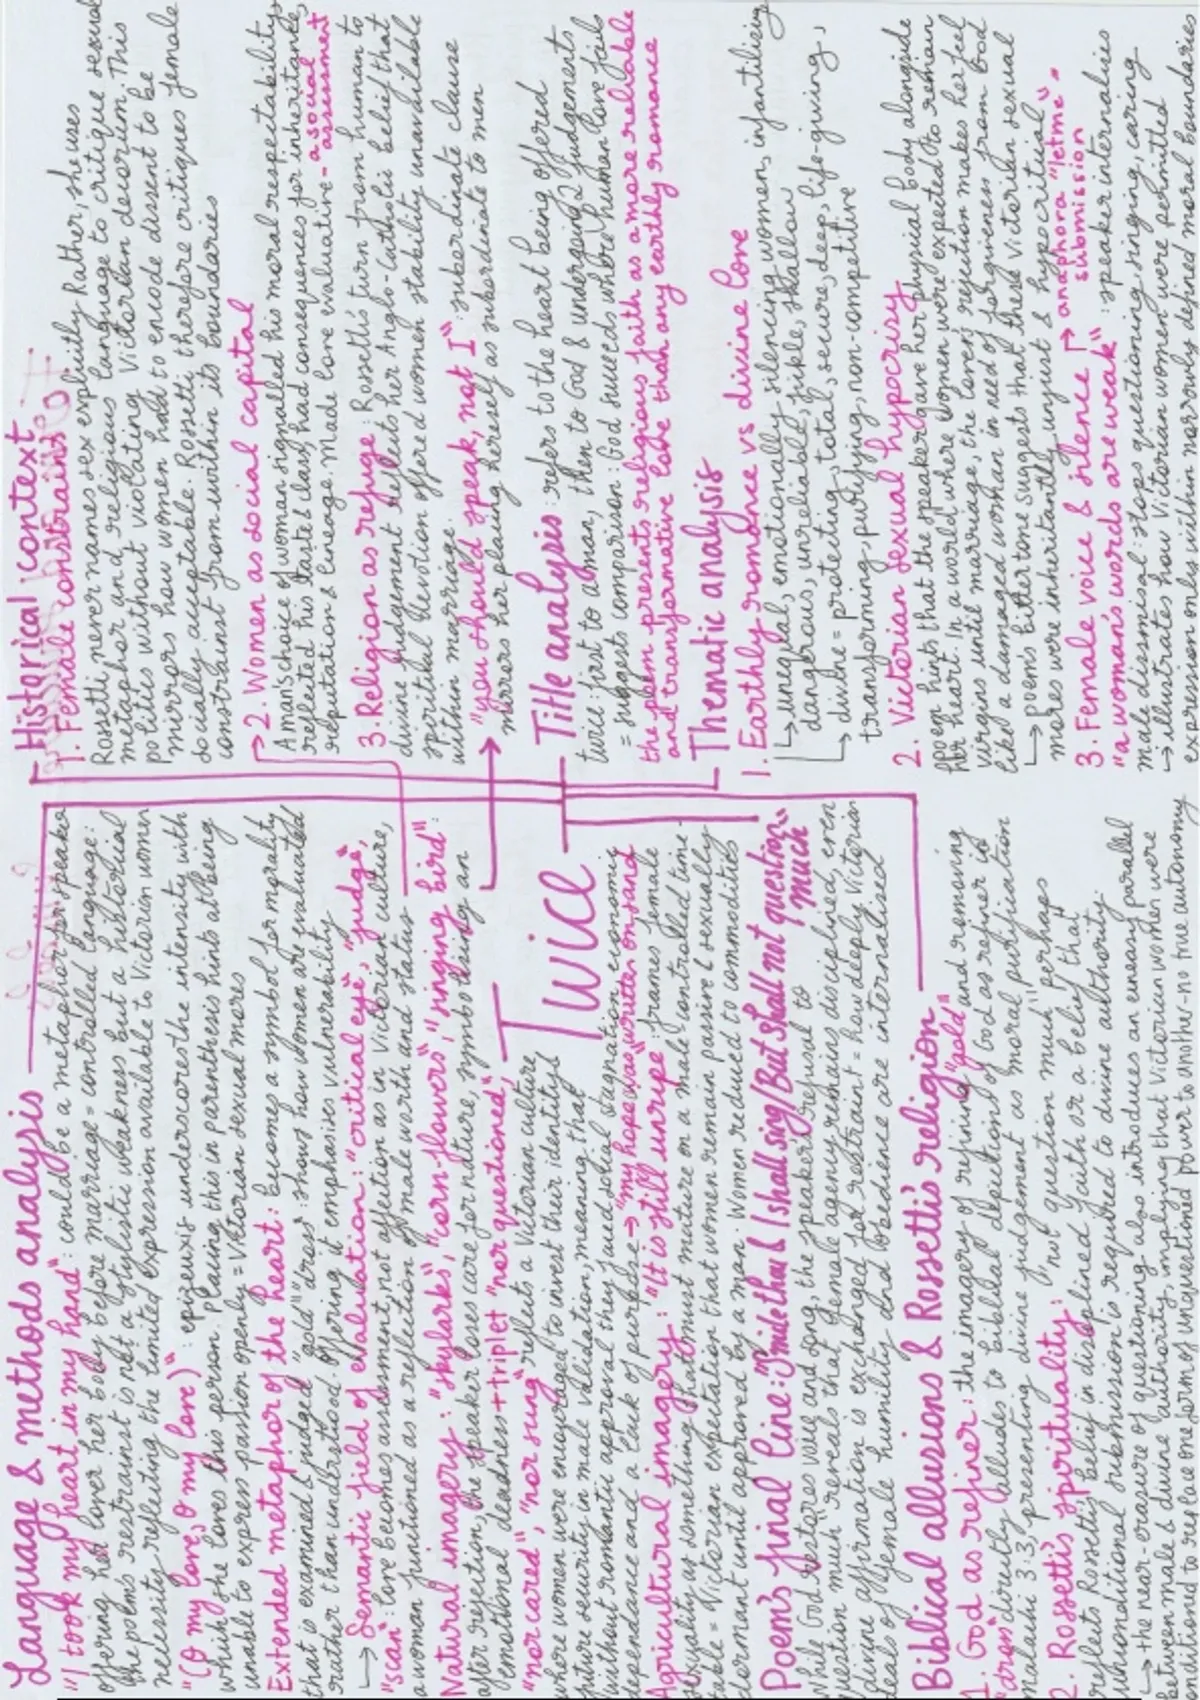 Language & methods analysis
"I took my heart in my hand": could be a metaphor for speaker
offering her lover her body before marriage = controlled language:
the poem's restraint is not a stylistic weakness but a historical
necessity reflecting the limited expression available to Victorian women
"(O my love, O my love)": epizeuxis underscores the intensity with
which she loves this person. Placing this in parenthesis hints at being
unable to express passion openly = Victorian sexual mores
Extended metaphor of the heart: becomes a symbol for morality
that is examined & judged, "gold" "dross": shows how women are evaluated
rather than understood. Offering it emphasises vulnerability
↳ Semantic field of evaluation: "critical eye", "judge",
"scan": love becomes assessment, not affection as in Victorian culture,
a woman functioned as a reflection of male worth and status
Natural imagery: "skylarks", "corn-flowers", "singing bird":
after rejection, the speaker loses care for nature, symbolising an
emotional deadness ++ triplet "nor questioned",
"nor cared", "nor sung" reflects a Victorian culture
where women were encouraged to invest their identity &
future security in male validation, meaning that
without romantic approval they faced social stagnation, economic
dependance and a lack of purpose → "my hope was written on sand"
Agricultural imagery: "It is still unripe": frames female
sexuality as something that must mature on a male controlled time-
table = Victorian expectation that women remain passive & sexually
dormant until approved by a man. Women reduced to commodities
Poem's final line: "Smile thou & I shall sing/But shall not question
much"
while God restores voice and song, the speaker's refusal to
question much" reveals that female agency remains disciplined, even
divine affirmation is exchanged for restraint = how deeply Victorian
ideals of female humility and obedience are internalised
Biblical allusions & Rossetti's religion
1. God as refiner: the imagery of refining "gold" and removing
"dross" directly alludes to biblical depictions of God as refiner in
Malachi 3:3, presenting divine judgement as moral purification
2. Rossetti's spirituality: "not question much" perhaps
reflects Rossetti's belief in disciplined faith or a belief that
unconditional submission is required to divine authority
↳ the near-erasure of questioning also introduces an uneasy parallel
between male & divine authority, implying that Victorian women were
conditioned to replace one form of unquestioned power to another - no true autonomy
Twice
Historical context
1. Female constraints
Rossetti never names sex explicitly. Rather, she uses
metaphor and religious language to critique sexual
politics without violating Victorian decorum. This
mirrors how women had to encode dissent to be
socially acceptable. Rossetti therefore critiques female
constraint from within its boundaries
2. Women as social capital
A man's choice of woman signalled his moral respectability,
reflected his taste & class, had consequences for inheritance,
reputation & lineage. Made love evaluative - a social
assessment
3. Religion as refuge: Rossetti's turn from human to
divine judgement reflects her Anglo-Catholic belief that
spiritual devotion offered women stability unavailable
within marriage.
"you should speak, not I": subordinate clause
mirrors her placing herself as subordinate to men
Title analysis: refers to the heart being offered
twice: first to a man, then to God & undergoing 2 judgements
= suggests comparison: God succeeds where human love fails
the poem presents religious faith as a more reliable
and transformative love than any earthly romance
Thematic analysis
1. Earthly romance vs divine love
↳ unequal, emotionally silencing women, infantilising,
dangerous, unreliable, fickle, shallow
↳ divine = protecting, total, secure, deep, life-giving,
transforming, purifying, non-competitive
2. Victorian sexual hypocrisy
poem hints that the speaker gave her physical body alongside
her heart. In a world where women were expected to remain
virgins until marriage, the lover's rejection makes her feel
like a damaged woman in need of forgiveness from God
↳ poem's bitter tone suggests that these Victorian sexual
mores were inheritantly unjust & hypocritical
3. Female voice & silence → anaphora "let me"
submission
"a woman's words are weak": speaker internalises
male dismissal: stops questioning, singing, caring
→ illustrates how Victorian women were permitted
expression only within narrowly defined moral boundaries